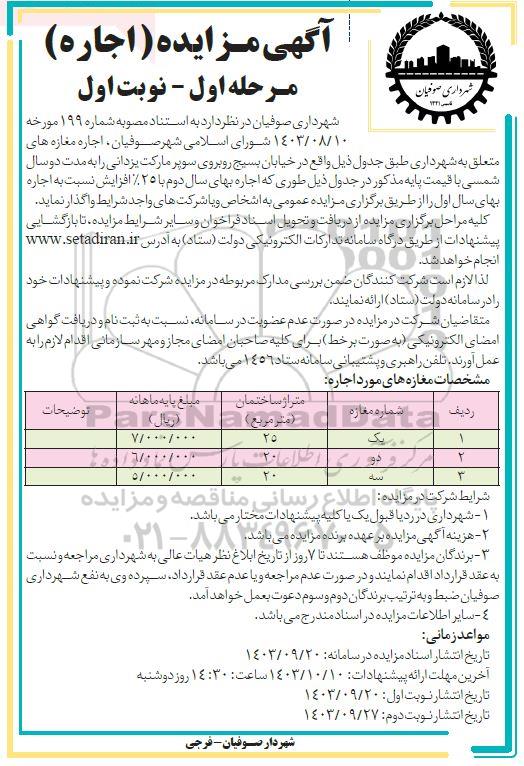 آگهی مزایده (اجاره)
مرحله اول - نوبت اول
شهرداری صوفیان
تاسیس ۱۳۳۱
شهرداری صوفیان در نظر دارد به استناد مصوبه شماره ۱۹۹ مورخه
۱۴۰۳/۰۸/۱۰ شورای اسلامی شهر صوفیان، اجاره مغازه های
متعلق به شهرداری طبق جدول ذیل واقع در خیابان بسیج روبروی سوپر مارکت یزدانی را به مدت دو سال
شمسی با قیمت پایه مذکور در جدول ذیل طوری که اجاره بهای سال دوم با ۲۵٪ افزایش نسبت به اجاره
بهای سال اول را از طریق برگزاری مزایده عمومی به اشخاص و یا شرکت های واجد شرایط واگذار نماید.
کلیه مراحل برگزاری مزایده از دریافت و تحویل اسناد فراخوان و سایر شرایط مزایده، تا بازگشایی
پیشنهادات از طریق درگاه سامانه تدارکات الکترونیکی دولت (ستاد) به آدرس www.setadiran.ir
انجام خواهد شد.
لذا لازم است شرکت کنندگان ضمن بررسی مدارک مربوطه در مزایده شرکت نموده و پیشنهادات خود
را در سامانه دولت (ستاد) ارائه نمایند.
متقاضیان شرکت در مزایده در صورت عدم عضویت در سامانه، نسبت به ثبت نام و دریافت گواهی
امضای الکترونیکی (به صورت برخط) برای کلیه صاحبان امضای مجاز و مهر سازمانی اقدام لازم را به
عمل آورند. تلفن راهبری و پشتیبانی سامانه ستاد ۱۴۵۶ می باشد.
مشخصات مغازه های مورد اجاره:
ردیف شماره مغازه متراژ ساختمان (متر مربع) مبلغ پایه ماهانه (ریال) توضیحات
۱ یک ۲۵ ۷/۰۰۰/۰۰۰
۲ دو ۲۰ ۶/۰۰۰/۰۰۰
۳ سه ۲۰ ۵/۰۰۰/۰۰۰
شرایط شرکت در مزایده:
۱- شهرداری در رد یا قبول یک یا کلیه پیشنهادات مختار می باشد.
۲- هزینه آگهی مزایده بر عهده برنده مزایده می باشد.
۳- برندگان مزایده موظف هستند تا ۷ روز از تاریخ ابلاغ نظر هیات عالی به شهرداری مراجعه و نسبت
به عقد قرارداد اقدام نمایند و در صورت عدم مراجعه و یا عدم عقد قرارداد، سپرده وی به نفع شهرداری
صوفیان ضبط و به ترتیب برندگان دوم و سوم دعوت بعمل خواهد آمد.
۴- سایر اطلاعات مزایده در اسناد مندرج می باشد.
مواعد زمانی:
تاریخ انتشار اسناد مزایده در سامانه: ۱۴۰۳/۰۹/۲۰
آخرین مهلت ارائه پیشنهادات: ۱۴۰۳/۱۰/۱۰ ساعت: ۱۴:۳۰ روز دوشنبه
تاریخ انتشار نوبت اول: ۱۴۰۳/۰۹/۲۰
تاریخ انتشار نوبت دوم: ۱۴۰۳/۰۹/۲۷
شهردار صوفیان - فرجی
ParsNamadData
پایگاه اطلاع رسانی مناقصه و مزایده